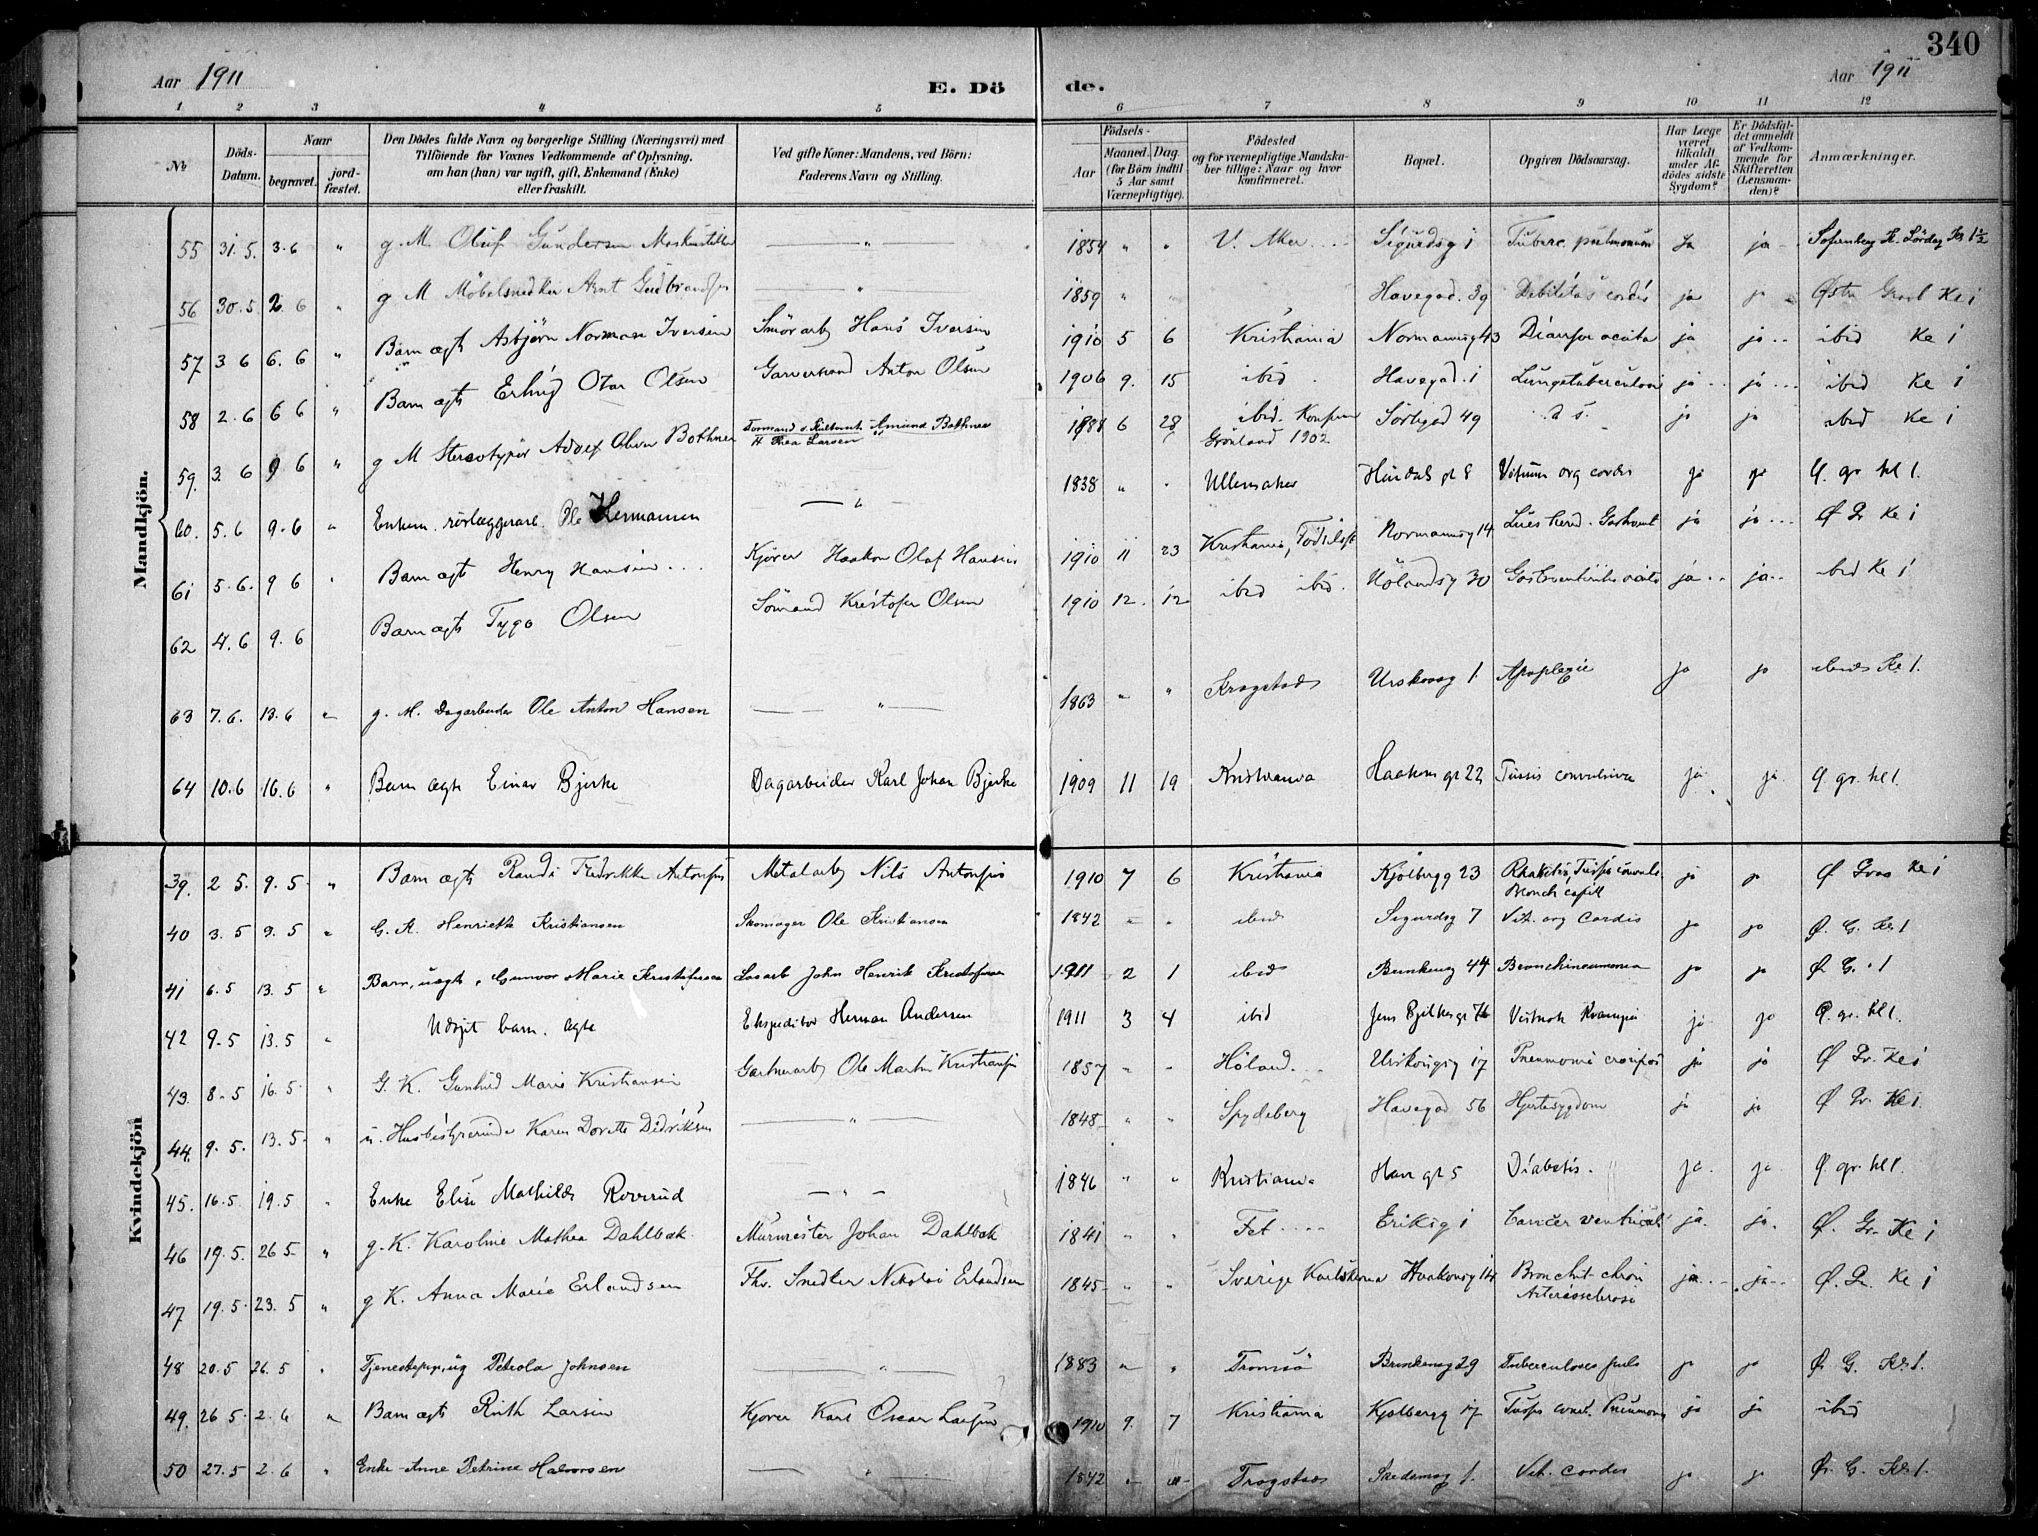 340
Aar 1911
E. Dö
de.
Aar 1911
1 2 3 4 5 6 7 8 9 10 11 12
№
Döds-Datum.
Naar
begravet.
jord-fæstet.
Den Dödes fulde Navn og borgerlige Stilling (Næringsvei) med
Tilföiende for Voxnes Vedkommende af Oplysning,
om han (hun) var ugift, gift, Enkemand (Enke)
eller fraskilt.
Ved gifte Koner: Mandens, ved Börn:
Faderens Navn og Stilling.
Födsels-
Aar
Maaned.
Dag.
(for Börn indtil
5 Aar samt
Værnepligtige).
Födested
og for værnepligtige Mandska-
ber tillige: Naar og hvor
konfirmeret.
Bopæl.
Opgiven Dödsaarsag.
Har Læge
været
tilkaldt
under Af-
dödes sidste
Sygdom?
Er Dödsfal-
det anmeldt
af Vedkom-
mende for
Skifteretten
(Lensman-
den)?
Anmærkninger.
Mandkjön.
55 31.5. 3.6 " g. M. Oluf Gundersen — " — 1854 " " V. Aker Sigurdsg 1 Tuberc. pulmonum Ja ja Sofienberg K. Lördag Kl 1½
56 30.5 2 6 " g M Möbelsnedker Arnt Gudbrandsen — " — 1859 " " Havegad. 39 Debilitas cordis ja ja Østre Gravl Kl 1
57 3 6 6. 6 " Barn ægte Asbjørn Norman Iversen Smörarb Hans Iversen 1910 5 6 Kristiania Normannsg 43 Diarrhoe acuta ja ja ibid Kl 1
58 2.6 6 6 " Barn ægte Erling Olsen Garversvend Anton Olsen 1906 9. 15 ibid. Havegad. 1 Lungetuberculose ja ja ibid Kl 1
59. 3. 6 9 6 " g M Stereotypör Adolf Oliver Bothner Amund Bothner
Thea Larsen 1888 6 28 ibid. Konfirm
Grönland 1902 Sörligad 49 d s. ja ja ibid Kl 1
60. 5.6 9.6 " Enkem. rörlæggerarb. Ole Hermansen — " 1838 " " Ullensaker Hindals gt 8 Vitium org cordis ja ja Ø. gr. kl 1.
61 5.6. 9 6 " Barn ægte Henry Hansen Kjører Haakon Olaf Hansen 1910 11 23 Kristiania, Födselsst Normannsg 14 Lues hered. ja ja Ø Gr Kl 1
62 4.6 9.6 Barn ægte Tygo Olsen Sömand Kristofer Olsen 1910 12. 12 ibid ibid. Hölandsg 30 Gastroenteritis acuta ja ja ibid Kl 1
63 7.6. 13.6 " g. M. Dagarbeider Ole Anton Hansen — " — 1863 " " Krogstads Urskovsg 1. Apoplexie ja ja ibid Kl 1.
64 10.6 16.6 " Barn ægte Einar Bjerke Dagarbeider Karl Johan Bjerke 1909 11 19 Kristiania Haakons gt 22 Tussis convulsiva ja ja. Ø. gr. kl 1.
Kvindekjön
39. 2 5. 9.5 " Barn ægte Randi Fredrikke Antonsen Metalarb Nils Antonsen 1910 7 6 Kristiania Kjølbergg 23 Rhakitis, Tussis convuls.
Bronch capill ja ja Ø Grav Kl 1
40 3.5 9.5 " G. K. Henriette Kristiansen Skomager Ole Kristiansen 1842 " " ibid Sigurdsg 7 Vit. org cordis ja ja Ø. G. Kl 1
41 6.5 13.5 " Barn, uægte, Gunvor Marie Kristofersen Løsarb John Henrik Kristofersen 1911 2 1 ibid Brinkensg 44 Bronchipneumonia ja ja Ø. G. " 1
42 9.5 13.5 " Udøpt barn. ægte Ekspeditør Herman Andersen 1911 3 4 ibid Jens Bjelkes gt 76 Vistnok Krampe ja ja Ø. gr. kl 1.
43. 8.5 16.5 " G. K. Gunhild Marie Kristiansen Gartnerarb Ole Martin Kristiansen 1857 " " Höland. Urskougsg 17 Pneumonia crouposa ja ja Ø Gr. Kl 1
44. 9.5. 13.5. " u. Husbestyrerinde Karen Dorette Didriksen — " — 1848 " " Spydeberg Havegad 56 Hjertesygdom ja ja Ø Gr. Kl 1
45. 16.5. 19.5 " Enke Elise Mathilde Roverud — " — 1846 " " Kristiania Hav gt 5 Diabetis. ja. ja. Ø. gr. kl 1.
46 19.5. 26 5 " g. K. Karoline Mathea Dahlbak Murmester Johan Dahlbak 1841 " " Fet Eriksg 1 Cancer ventriculi ja. ja. Ø. Gr. Kl 1
47 19.5. 23. 5 " g K. Anna Marie Erlandsen Fhv. Snedker Nikolai Erlandsen 1845 " " Sverige Karlskrona Haakonsg 14 Bronchit chron
Arteriosclerose ja ja Ø. Gr Kl 1
48 20.5 26.5 " Tjenestepige, ug Petrola Johnsen — " — 1883 " " Tromsö Brinkensg 29 Tuberculosis pulm ja ja Ø. G. Kl 1.
49. 26 5. 2.6 " Barn ægte Ruth Larsen Kjører Karl Oscar Larsen 1910 9. 7 Kristiania Kjölbergg 17 Tussis conv. Pneumoni ja ja ibid
50 27.5 2.6 " Enke Anne Petrine Halvorsen — " — 1842 " " Trøgstad Skedsmog 1. Vit. cordis ja ja Ø. G. Kl 1.